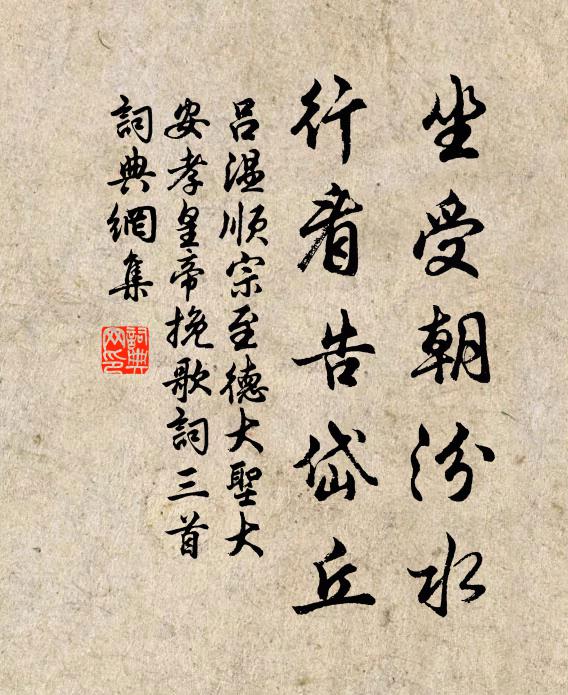 坐受朝汾水
行看告岱丘
吕温順宗至德大聖大
安孝皇帝挽歌詞三首
詞典網集
詞典网印